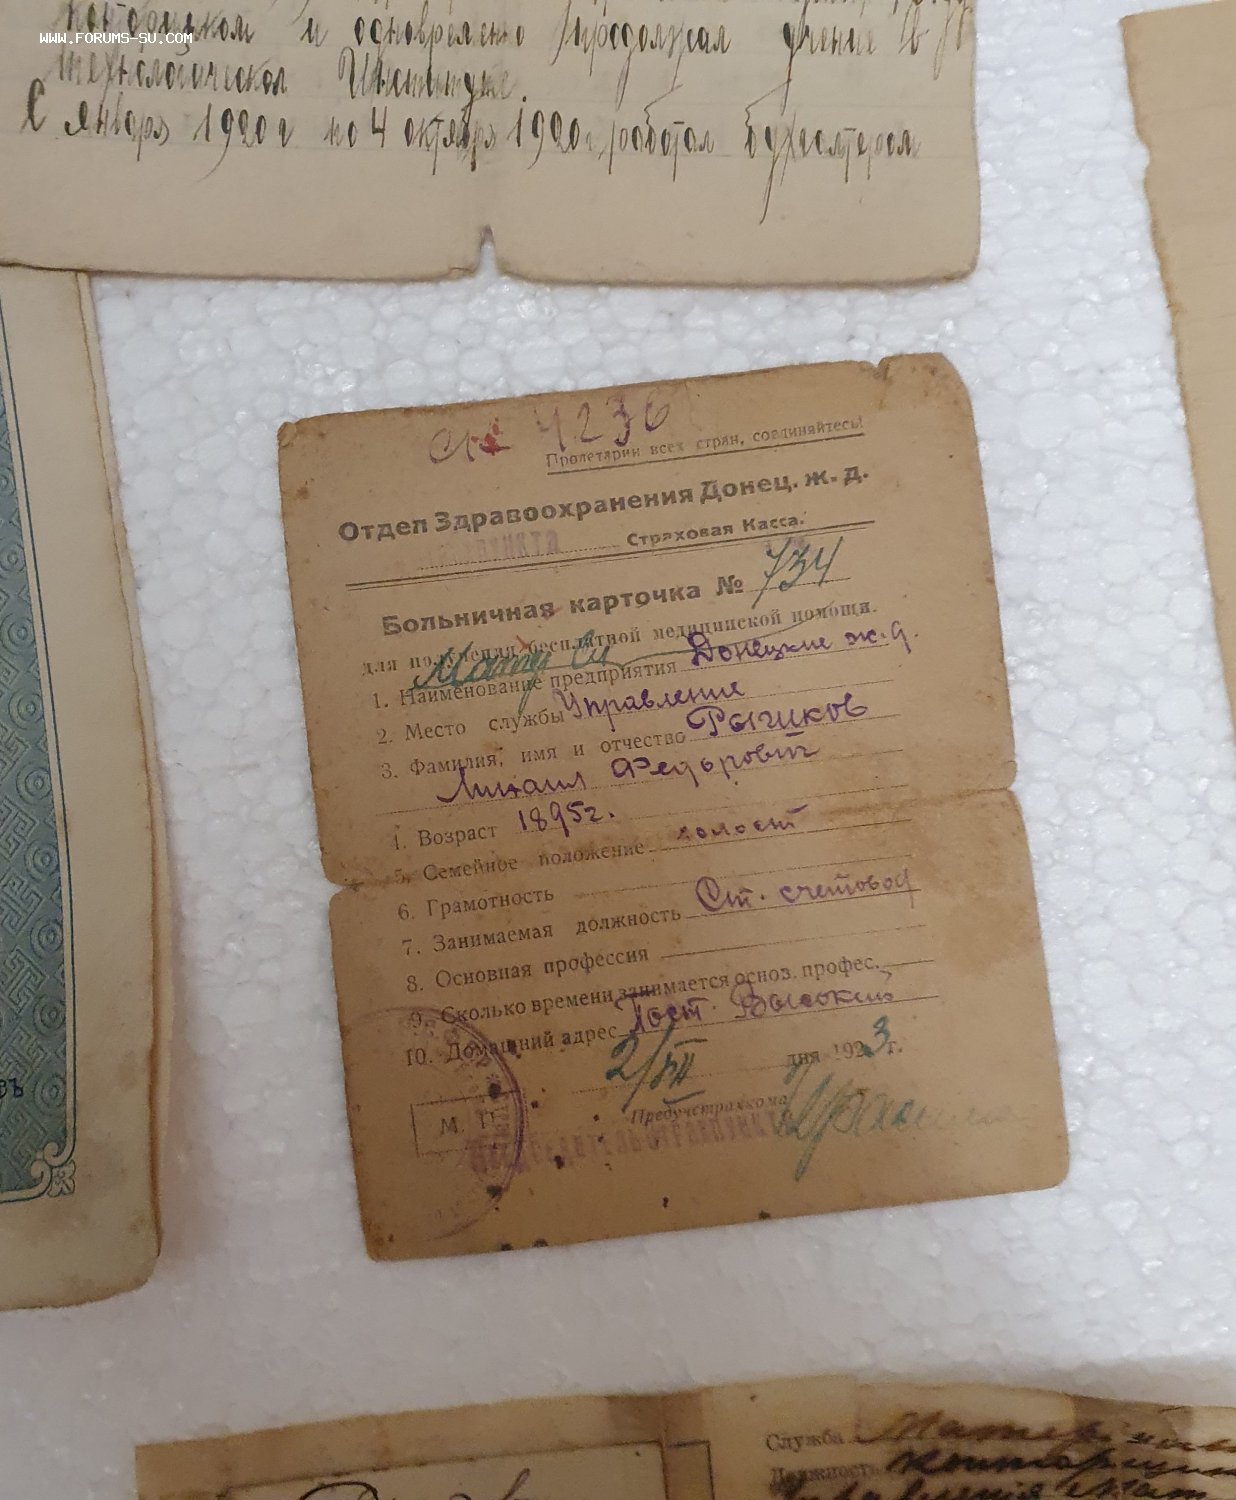 www.forums-su.com
конторщиком и одновременно продолжал учение в
технологическом Институте.
С января 1920 г по 4 октября 1920 г. работал бухгалтером
4236
Пролетарии всех стран, соединяйтесь!
Отдел Здравоохранения Донец. ж. д.
Страховая Касса.
Больничная карточка № 734
для получения бесплатной медицинской помощи.
1. Наименование предприятия Донецкие ж.д.
2. Место службы Управление
3. Фамилия, имя и отчество Рыжков
Михаил Федорович
4. Возраст 1895 г.
5. Семейное положение холост
6. Грамотность
7. Занимаемая должность Ст. счетовод
8. Основная профессия
9. Сколько времени занимается основ. профес.
10. Домашний адрес Пост. Высокий
2/VII дня 1923 г.
М. П.
Предучстрахкома
Служба
Должность конторщик
управления